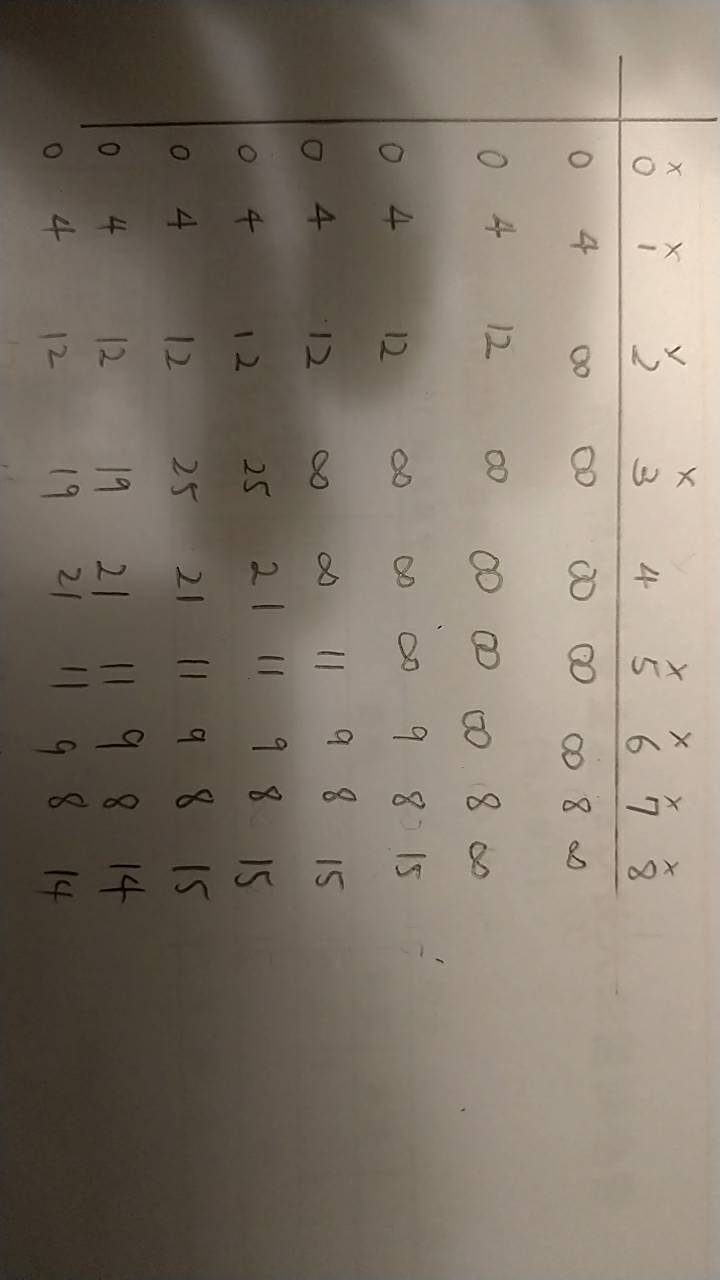 x x x x x x x x
0 1 2 3 4 5 6 7 8
0 4 ∞ ∞ ∞ ∞ ∞ 8 ∞
0 4 12 ∞ ∞ ∞ ∞ 8 ∞
0 4 12 ∞ ∞ ∞ 9 8 15
0 4 12 ∞ ∞ 11 9 8 15
0 4 12 25 21 11 9 8 15
0 4 12 25 21 11 9 8 15
0 4 12 19 21 11 9 8 14
0 4 12 19 21 11 9 8 14